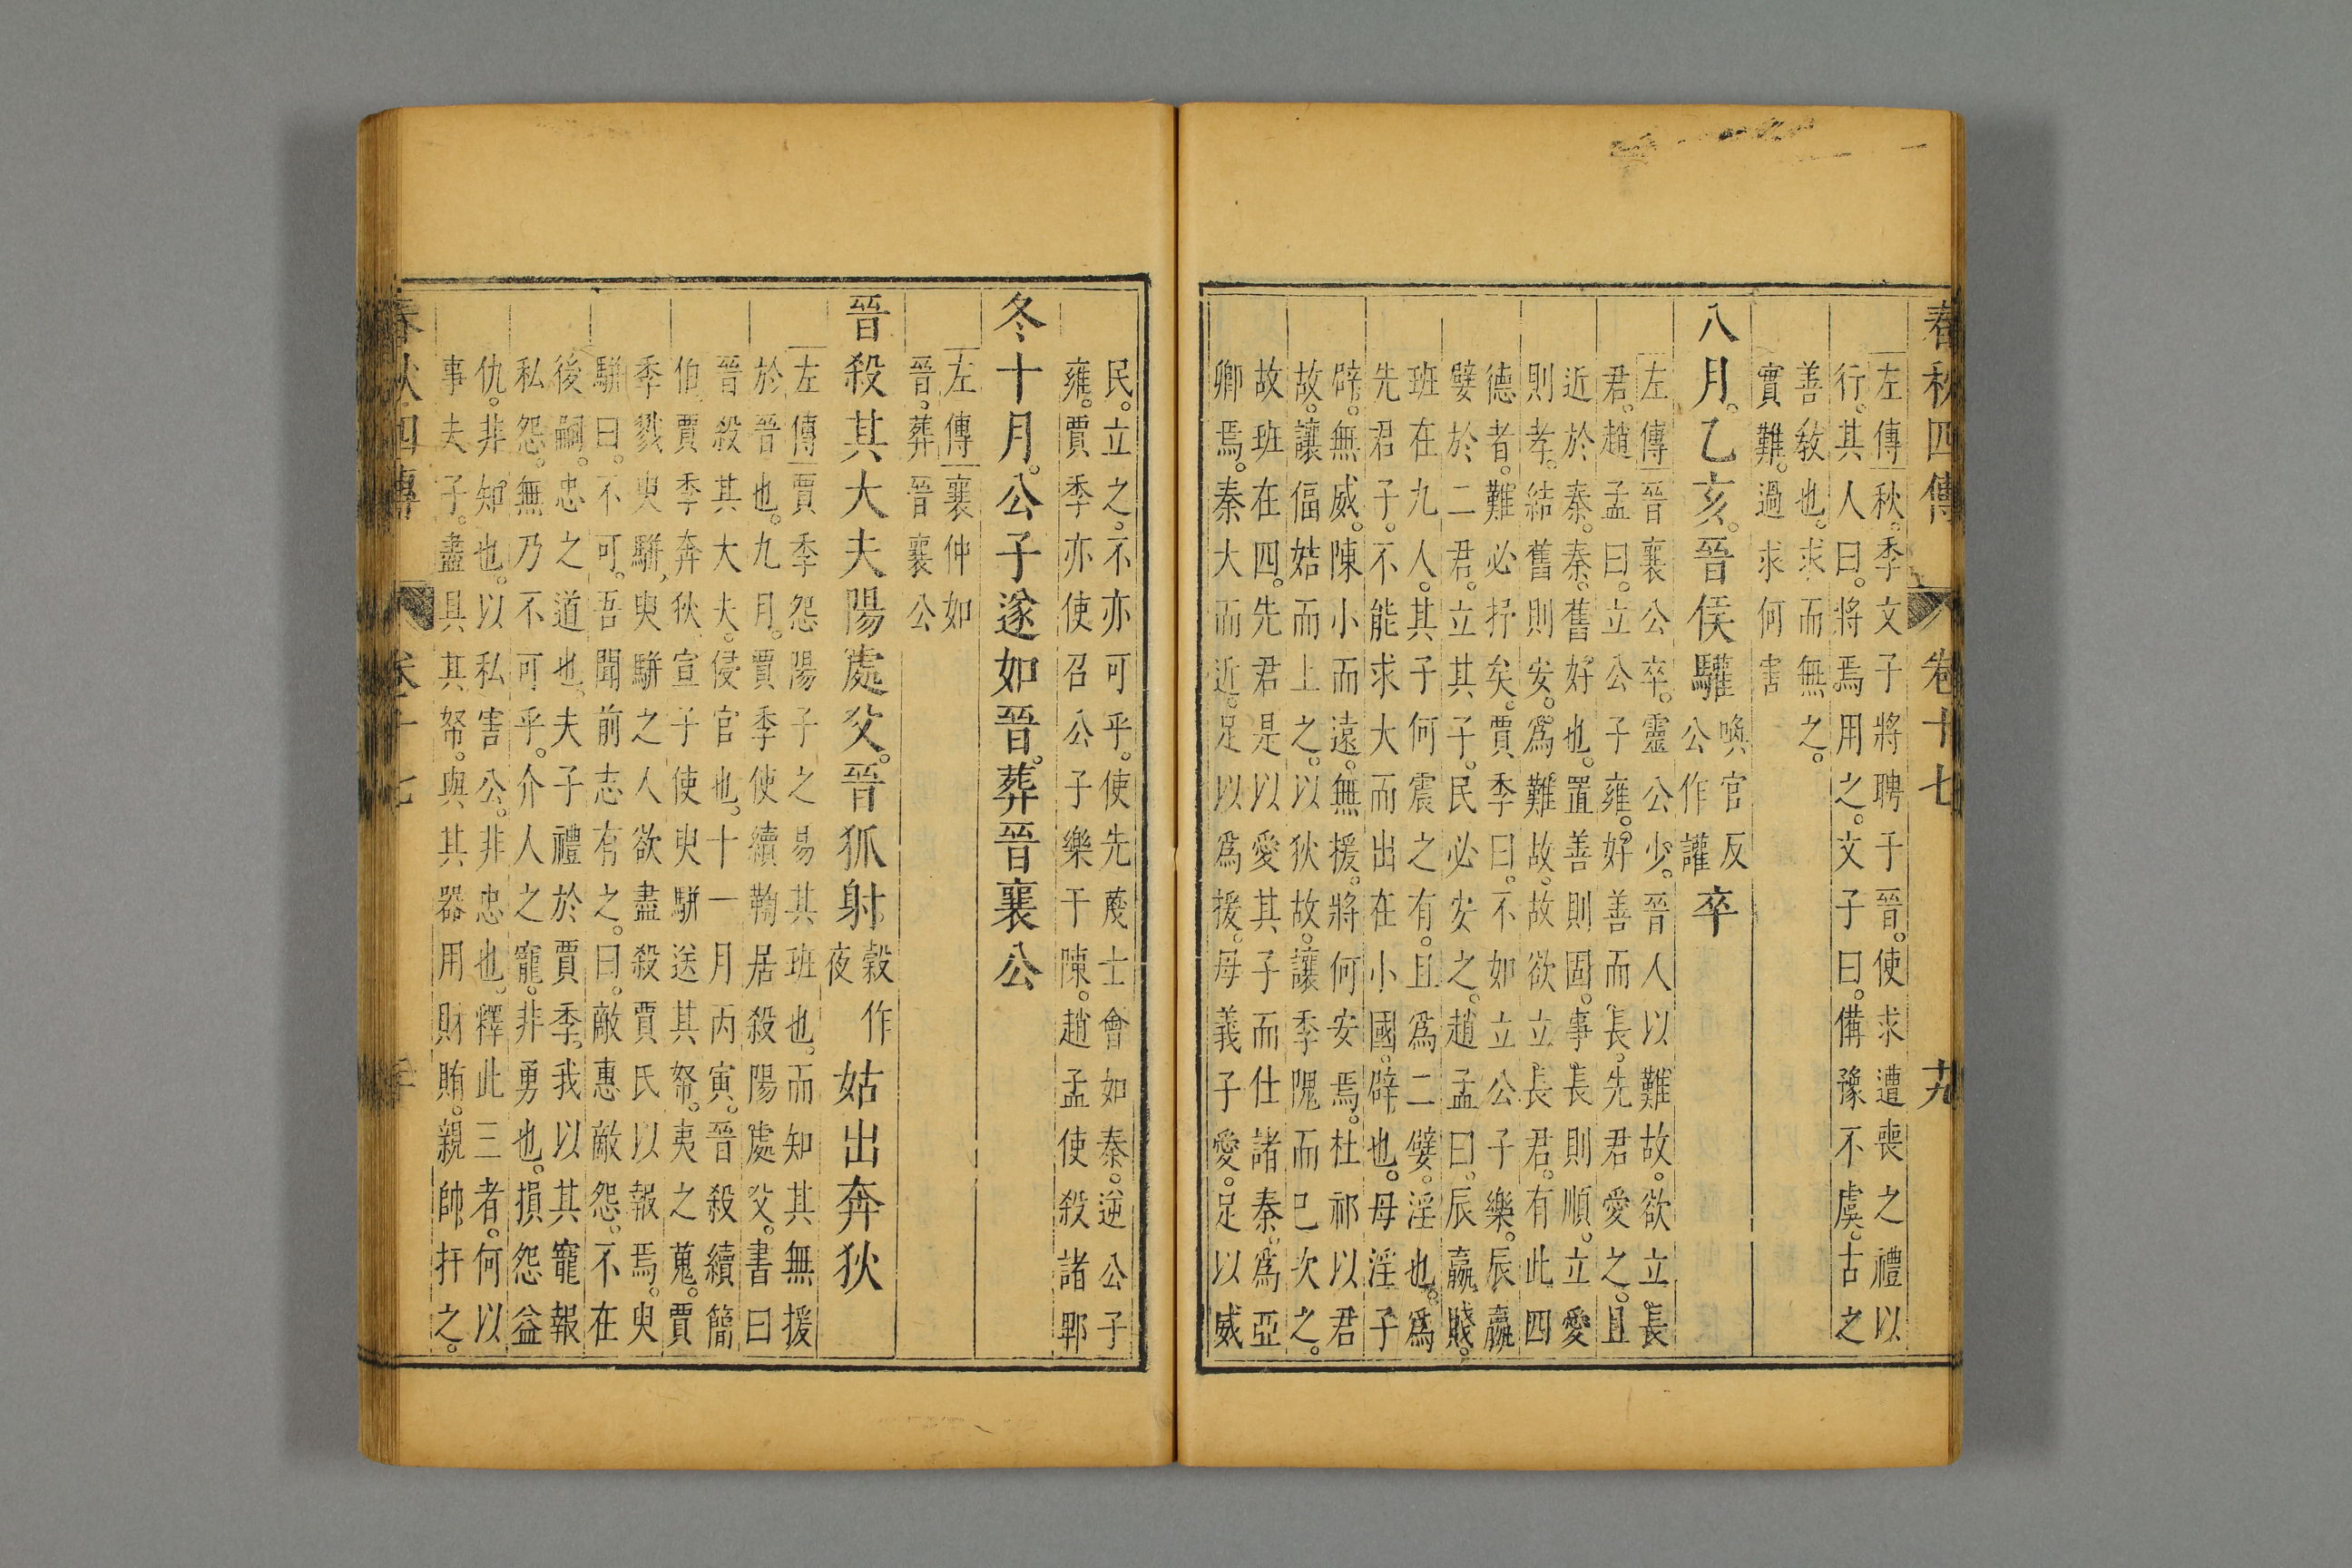 春秋四傳 卷十七 十九
左傳秋。季文子將聘于晉。使求遭喪之禮以
行。其人曰。將焉用之。文子曰。備豫不虞。古之
善敎也。求而無之。
實難。過求何害
八月。乙亥。晉侯驩喚官反公作讙卒
左傳晉襄公卒。靈公少。晉人以難故。欲立長
君。趙孟曰。立公子雍。好善而長。先君愛之。且
近於秦。秦。舊好也。置善則固。事長則順。立愛
則孝。結舊則安。爲難故。故欲立長君。有此四
德者。難必抒矣。賈季曰。不如立公子樂。辰嬴
嬖於二君。立其子。民必安之。趙孟曰。辰嬴賤。
班在九人。其子何震之有。且爲二嬖。淫也。爲
先君子。不能求大而出在小國。辟也。母淫子
辟。無威。陳小而遠。無援。將何安焉。杜祁以君
故。讓偪姞而上之。以狄故。讓季隗而己次之。
故班在四。先君是以愛其子而仕諸秦。爲亞
卿焉。秦大而近。足以爲援。母義子愛。足以威
民。立之。不亦可乎。使先蔑士會如秦。逆公子
雍。賈季亦使召公子樂于陳。趙孟使殺諸郫
冬十月。公子遂如晉。葬晉襄公
左傳襄仲如
晉。葬晉襄公
晉殺其大夫陽處父。晉狐射穀作夜姑出奔狄
左傳賈季怨陽子之易其班也。而知其無援
於晉也。九月。賈季使續鞫居殺陽處父。書曰
晉殺其大夫。侵官也。十一月丙寅。晉殺續簡
伯。賈季奔狄。宣子使臾駢送其帑。夷之蒐。賈
季戮臾駢。臾駢之人欲盡殺賈氏以報焉。臾
駢曰。不可。吾聞前志有之。曰。敵惠敵怨。不在
後嗣。忠之道也。夫子禮於賈季。我以其寵報
私怨。無乃不可乎。介人之寵。非勇也。損怨益
仇。非知也。以私害公。非忠也。釋此三者。何以
事夫子。盡具其帑。與其器用財賄。親帥扞之。
春秋四傳 卷十七